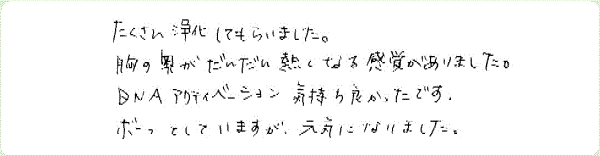 たくさん浄化してもらいました。
胸の奥がだんだん熱くなる感覚がありました。
DNAアクティベーション気持ち良かったです.
ボーっとしていますが、元気になりました。